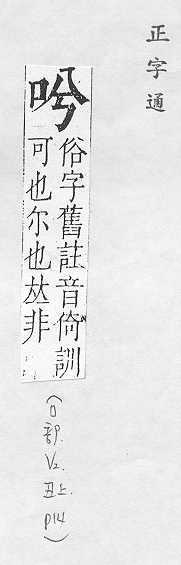 正字通
㕧
俗字舊註音倚訓
可也尔也𠀤非
(口
部.
1/2.
丑上.
P14)